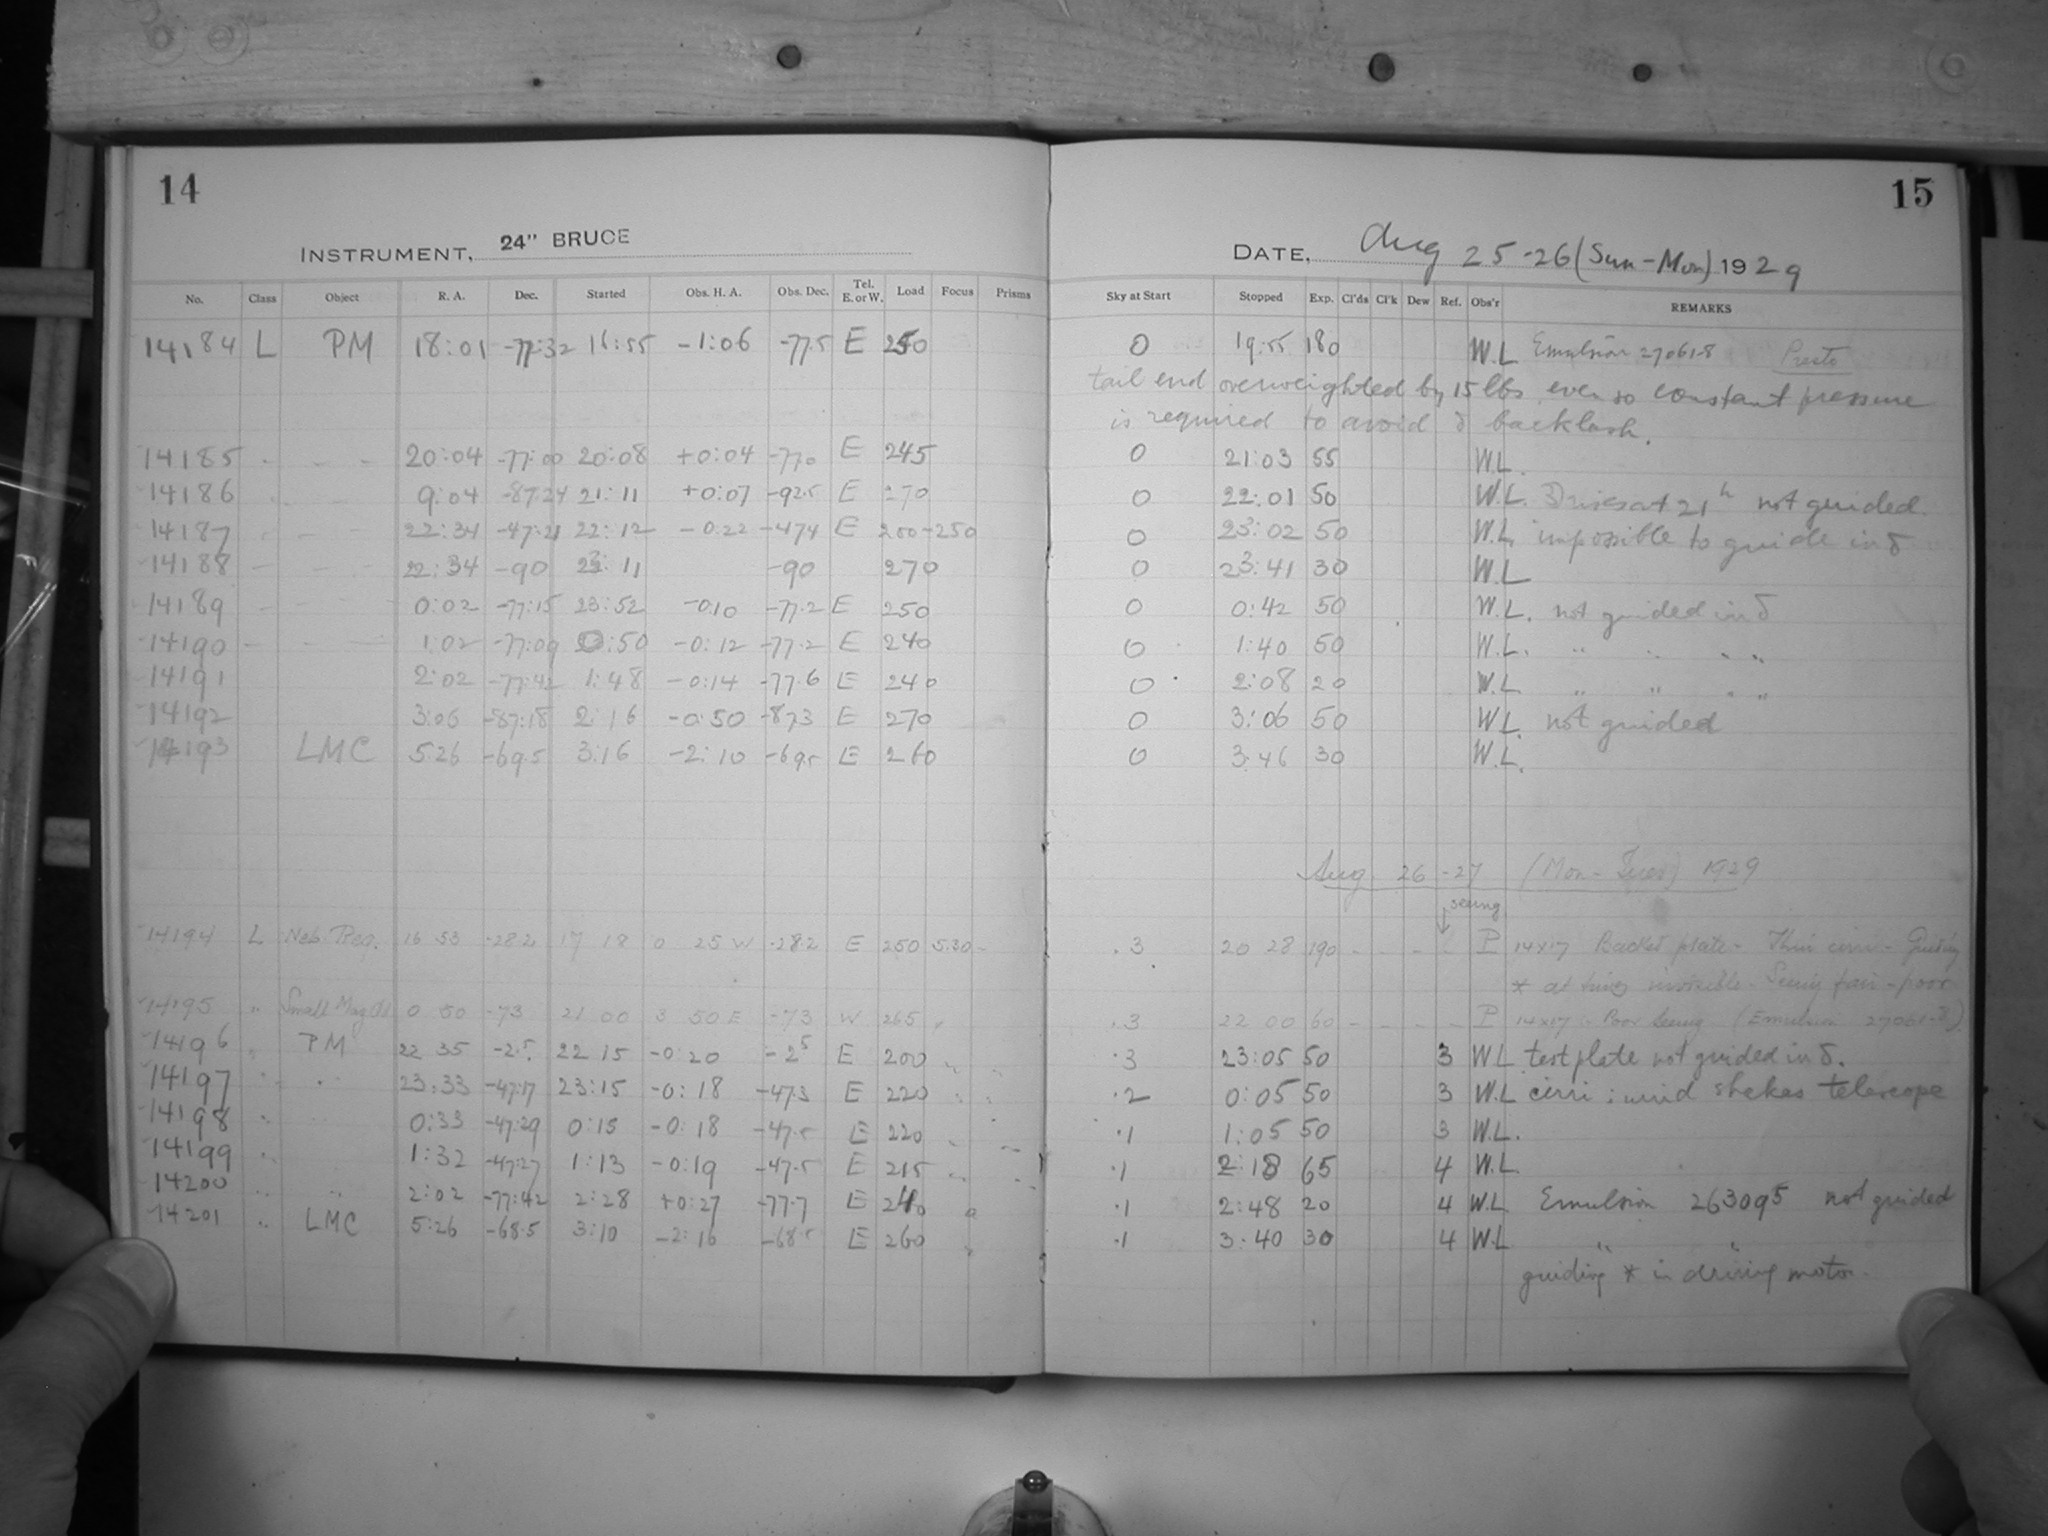 14
15
INSTRUMENT, 24" BRUCE
DATE, Aug 25-26 (Sun-Mon) 1929
No. Class Object R. A. Dec. Started Obs. H. A. Obs. Dec. Tel. E. or W. Load Focus Prisms Sky at Start Stopped Exp. Cl'ds Cl'k Dew Ref. Obs'r REMARKS
14184 L PM 18:01 -77:32 16:55 -1:06 -77.5 E 250 0 19:55 180 W.L Emulsion 27061-8 Presto
tail end overweighted by 15 lbs even so constant pressure
is required to avoid δ backlash.
14185 - - - 20:04 -77:00 20:08 +0:04 -77.0 E 245 0 21:03 55 W.L.
14186 9:04 -87:24 21:11 +0:07 -92.5 E 270 0 22:01 50 W.L. at 21h not guided.
14187 - - 22:34 -47:21 22:12 -0:22 -47.4 E 200-250 0 23:02 50 W.L. impossible to guide in δ
14188 - - - 22:34 -90 23:11 -90 270 0 23:41 30 W.L
14189 - - - 0:02 -77:15 23:52 -0:10 -77.2 E 250 0 0:42 50 W.L. not guided in δ
14190 - - 1:02 -77:09 0:50 -0:12 -77.2 E 240 0 1:40 50 W.L. " " " "
14191 2:02 -77:42 1:48 -0:14 -77.6 E 240 0 2:08 20 W.L " " " "
14192 3:06 -87:18 2:16 -0:50 -87.3 E 270 0 3:06 50 W.L. not guided
14193 LMC 5:26 -69.5 3:16 -2:10 -69.5 E 260 0 3:46 30 W.L.
Aug. 26-27 (Mon-Tues) 1929
seeing
14194 L Neb. Reg. 16 53 -28.2 17 18 0 25 W -28.2 E 250 5.30 - .3 20 28 190 - - - - P 14x17 Backed plate - Thin cirri - Guiding
* at times invisible - Seeing fair-poor
14195 " Small Mag Cl 0 50 -73 21 00 3 50 E -73 W 265 " .3 22 00 60 - - - - P 14x17 - Poor Seeing (Emulsion 27061-8)
14196 " PM 22 35 -2.5 22 15 -0:20 -2.5 E 200 " .3 23:05 50 3 W.L test plate not guided in δ.
14197 " " 23:33 -47:17 23:15 -0:18 -47.3 E 220 " " .2 0:05 50 3 W.L cirri; wind shakes telescope
14198 " 0:33 -47:29 0:15 -0:18 -47.5 E 220 " .1 1:05 50 3 W.L.
14199 " 1:32 -47:27 1:13 -0:19 -47.5 E 215 " .1 2:18 65 4 W.L.
14200 " " 2:02 -77:42 2:28 +0:27 -77.7 E 240 " .1 2:48 20 4 W.L Emulsion 263095 not guided
14201 " LMC 5:26 -68.5 3:10 -2:16 -68.5 E 260 " .1 3:40 30 4 W.L " "
guiding * in driving motor.